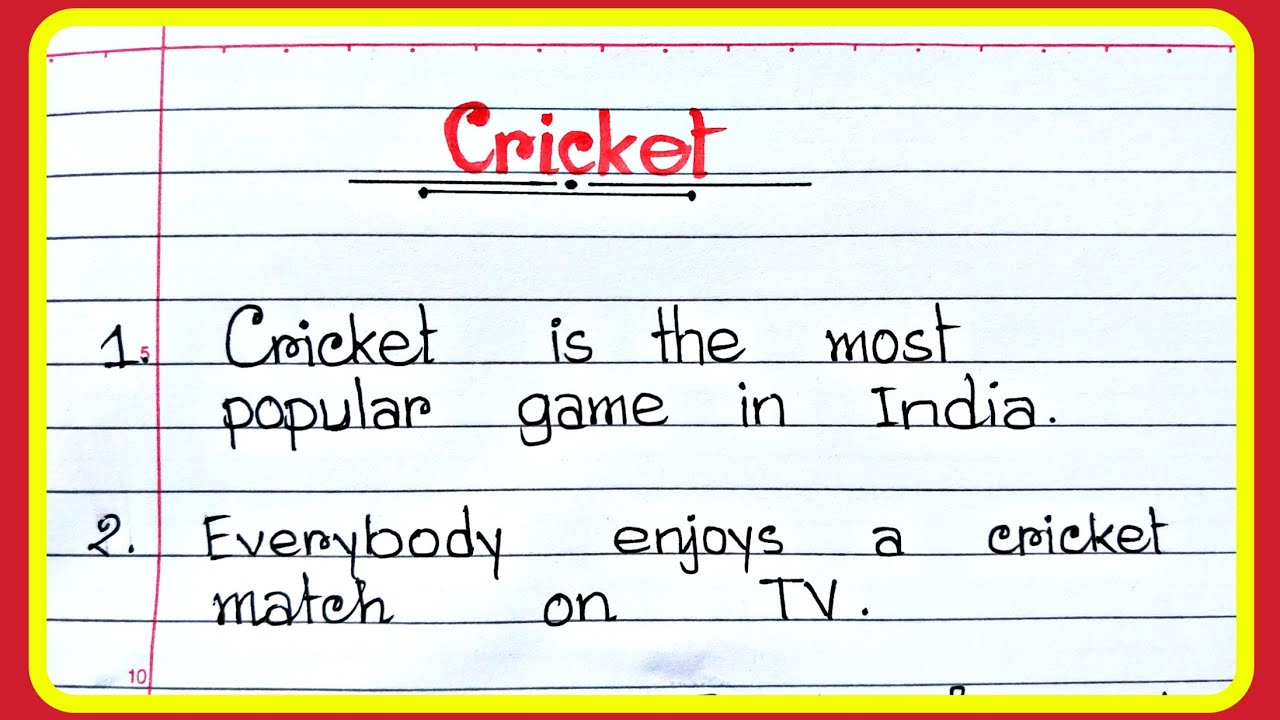 Cricket
1. Cricket is the most
popular game in India.
2. Everybody enjoys a cricket
match on TV.
5
10